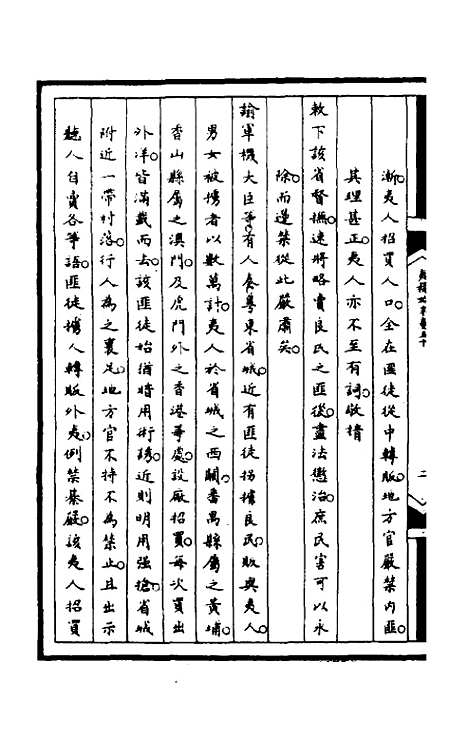 漸。夷人招買人口。全在匪徒從中轉販。地方官嚴禁內匪。
其理甚正。夷人亦不至有詞。敬請
敕下該省督撫。速將略賣良民之匪從。盡法懲治。庶民害可以永
除。而邊禁從此嚴肅矣。
諭軍機大臣等。有人奏粵東省城。近有匪徒拐擄良民。販與夷人。
男女被擄者以數萬計。夷人於省城之西關。番禺縣屬之黃埔。
香山縣屬之澳門。及虎門外之香港等處。設廠招買。每次買出
外洋。皆滿載而去。該匪徒始猶暗用術誘。近則明用强搶。省城
附近一帶村落。行人為之裹足。地方官不特不為禁止。且出示
聽人自賣各等語。匪徒擄人轉販外夷。例禁綦嚴。該夷人招買
二